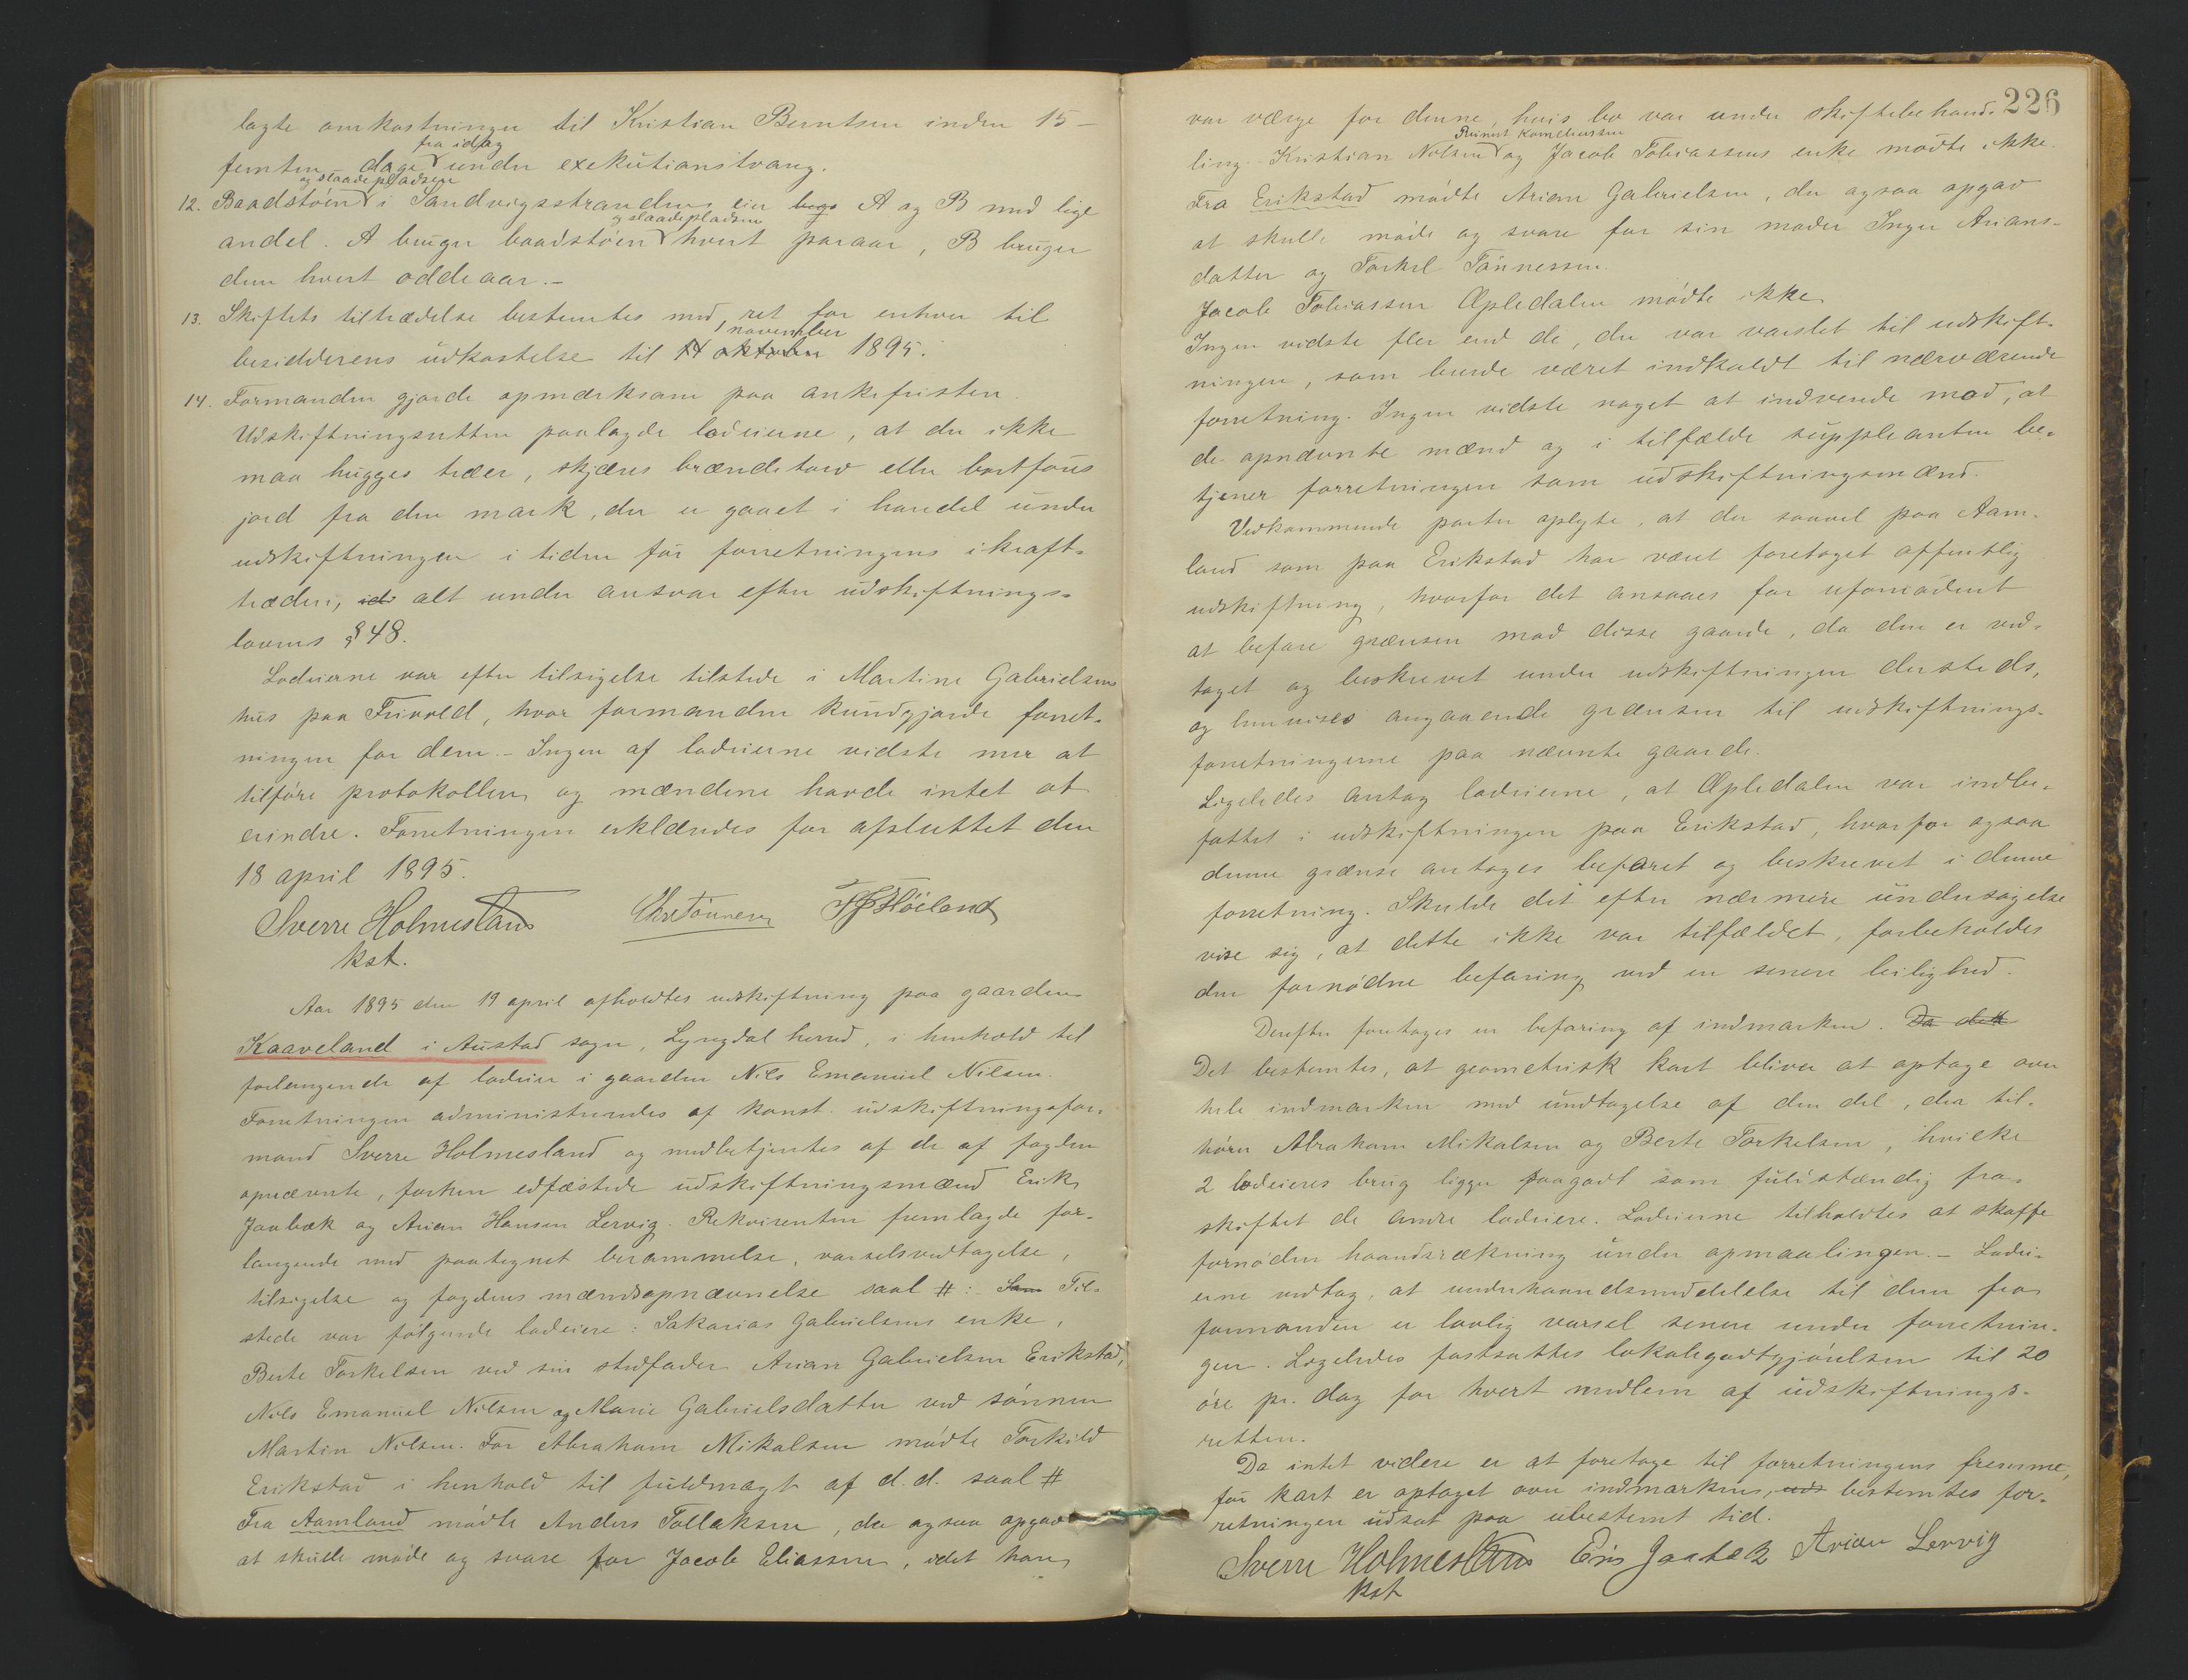 lagte omkostninger til Kristian Berntsen inden 15 –
fra idag
femten dage under exekutionstvang.
og staadepladsen
12. Baadstøen i Sandvigsstranden eier begs A og B med lige
og staadepladsen
andel. A bruger baadstøen hvert paraar, B bruger
den hvert oddeaar.–
13. Skiftets tiltrædelse bestemtes med ret for enhver til
1 november
besidderens udkastelse til 14 oktober 1895.
14. Formanden gjorde opmærksom paa ankefristen.
Udskiftningsretten paalagde lodeierne, at der ikke
maa hugges træer, skjæres brændetorv eller bortføres
jord fra den mark, der er gaaet i handel under
udskiftningen i tiden før forretningens ikraft-
træden, id alt under ansvar efter udskiftnings-
lovens § 48.
Lodeierne var efter tilsigelse tilstede i Martine Gabrielsens
hus paa Frivold, hvor formanden kundgjorde forret-
ningen for dem.– Ingen af lodeierne vidste mer at
tilføre protokollen og mændene havde intet at
erindre. Forretningen erklæredes for afsluttet den
18 april 1895.
Sverre Holmesland Chr Tønnesen T Høiland
kst.
Aar 1895 den 19 april afholdtes udskiftning paa gaarden
Kaaveland i Austad sogn, Lyngdal herred, i henhold til
forlangende af lodeier i gaarden Nils Emanuel Nilsen.
Forretningen administreredes af konst. udskiftningsfor-
mand Sverre Holmesland og medbetjentes af de af fogden
opnævnte, forhen edfæstede udskiftningsmænd Erik
Jaabæk og Arian Hansen Lervig. Rekvirenten fremlagde for-
langende med paategnet berammelse, varselsvedtagelse,
tilsigelse og fogdens mændsopnævnelse saal #: Som Til-
stede var følgende lodeiere: Sakarias Gabrielsens enke,
Berte Torkelsen ved sin stedfader Arian Gabrielsen Erikstad,
Nils Emanuel Nilsen og Marie Gabrielsdatter ved sønnen
Martin Nilsen. For Abraham Mikalsen mødte Torkild
Erikstad i henhold til fuldmagt af d.d. saal #
Fra Aamland mødte Anders Tollaksen, der ogsaa opgav
at skulle møde og svare for Jacob Eliassen, idet han
226
var værge for denne, hvis bo var under skiftebehand-
Reinert Korneliussen
ling. Kristian Nilsen og Jacob Tobiassens enke mødte ikke.
Fra Erikstad mødte Arian Gabrielsen, der ogsaa opgav
at skulle møde og svare for sin moder Inger Arians-
datter og Torkel Tønnessen.
Jacob Tobiassen Æpledalen mødte ikke
Ingen vidste fler end de, der var varslet til udskift-
ningen, som burde været indkaldt til nærværende
forretning. Ingen vidste noget at indvende mod, at
de opnævnte mænd og i tilfælde suppleanten be-
tjener forretningen som udskiftningsmænd.
Vedkommende parter oplyste, at der saavel paa Aam-
land som paa Erikstad har været foretaget offentlig
udskiftning, hvorfor det ansaaes for ufornødent
at befare grænsen mod disse gaarde, da den er ved-
taget og beskrevet under udskiftningen dersteds,
og henvises angaaende grænsen til udskiftnings-
forretningerne paa nævnte gaarde.
Ligeledes antog lodeierne, at Æpledalen var indbe-
fattet i udskiftningen paa Erikstad, hvorfor ogsaa
denne grænse antages befaret og beskrevet i denne
forretning. Skulde det efter nærmere undersøgelse
vise sig, at dette ikke var tilfældet, forbeholdes
den fornødne befaring ved en senere leilighed.
Derefter foretages en befaring af indmarken. Da dett
Det bestemtes, at geometrisk kart bliver at optage over
hele indmarken med undtagelse af den del, der til-
hører Abraham Mikalsen og Berte Torkelsen, hvilke
2 lodeieres brug ligger saagodt som fuldstændig fra-
skiftet de andre lodeiere. Lodeierne tilholdtes at skaffe
fornøden haandsrækning under opmaalingen.– Lodei-
erne vedtog, at underhaandsmeddelelse til dem fra
formanden er lovlig varsel senere under forretnin-
gen. Ligeledes fastsattes lokalegodtgjørelsen til 20
øre pr. dag for hvert medlem af udskiftnings-
retten.
Da intet videre er at foretage til forretningens fremme,
før kart er optaget over indmarken, uds bestemtes for-
retningen udsat paa ubestemt tid.
Sverre Holmesland Erik Jaabæk Arian Lervig
kst